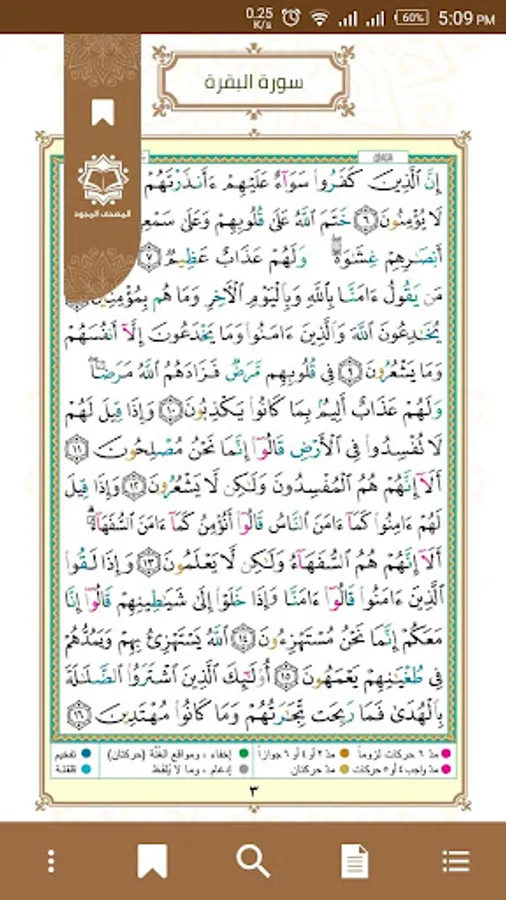 0.25 K/s 60% 5:09 PM
سورة البقرة
المصحف المجود
إِنَّ الَّذِينَ كَفَرُوا سَوَاءٌ عَلَيْهِمْ ءَأَنذَرْتَهُمْ
لَا يُؤْمِنُونَ ٦ خَتَمَ اللَّهُ عَلَىٰ قُلُوبِهِمْ وَعَلَىٰ سَمْعِ
أَبْصَـٰرِهِمْ غِشَـٰوَةٌ ۖ وَلَهُمْ عَذَابٌ عَظِيمٌ ٧
مَن يَقُولُ ءَامَنَّا بِاللَّهِ وَبِالْيَوْمِ الْآخِرِ وَمَا هُم بِمُؤْمِنِينَ
يُخَـٰدِعُونَ اللَّهَ وَالَّذِينَ ءَامَنُوا وَمَا يَخْدَعُونَ إِلَّا أَنفُسَهُمْ
وَمَا يَشْعُرُونَ ٩ فِي قُلُوبِهِم مَّرَضٌ فَزَادَهُمُ اللَّهُ مَرَضًا ۖ
وَلَهُمْ عَذَابٌ أَلِيمٌ بِمَا كَانُوا يَكْذِبُونَ ١٠ وَإِذَا قِيلَ لَهُمْ
لَا تُفْسِدُوا فِي الْأَرْضِ قَالُوا إِنَّمَا نَحْنُ مُصْلِحُونَ ١١
أَلَا إِنَّهُمْ هُمُ الْمُفْسِدُونَ وَلَـٰكِن لَّا يَشْعُرُونَ ١٢ وَإِذَا قِيلَ
لَهُمْ ءَامِنُوا كَمَا ءَامَنَ النَّاسُ قَالُوا أَنُؤْمِنُ كَمَا ءَامَنَ السُّفَهَاءُ ۗ
أَلَا إِنَّهُمْ هُمُ السُّفَهَاءُ وَلَـٰكِن لَّا يَعْلَمُونَ ١٣ وَإِذَا لَقُوا
الَّذِينَ ءَامَنُوا قَالُوا ءَامَنَّا وَإِذَا خَلَوْا إِلَىٰ شَيَـٰطِينِهِمْ قَالُوا إِنَّا
مَعَكُمْ إِنَّمَا نَحْنُ مُسْتَهْزِءُونَ ١٤ اللَّهُ يَسْتَهْزِئُ بِهِمْ وَيَمُدُّهُمْ
فِي طُغْيَـٰنِهِمْ يَعْمَهُونَ ١٥ أُولَـٰئِكَ الَّذِينَ اشْتَرَوُا الضَّلَـٰلَةَ
بِالْهُدَىٰ فَمَا رَبِحَت تِّجَـٰرَتُهُمْ وَمَا كَانُوا مُهْتَدِينَ ١٦
مدّ ٦ حركات لزوماً مدّ ٢ أو ٤ أو ٦ جوازاً إخفاء ، ومواقع الغُنَّة (حركتان) تفخيم
مدّ واجب ٤ أو ٥ حركات مدّ حركتان إدغام ، وما لا يُلفظ قلقلة
٣